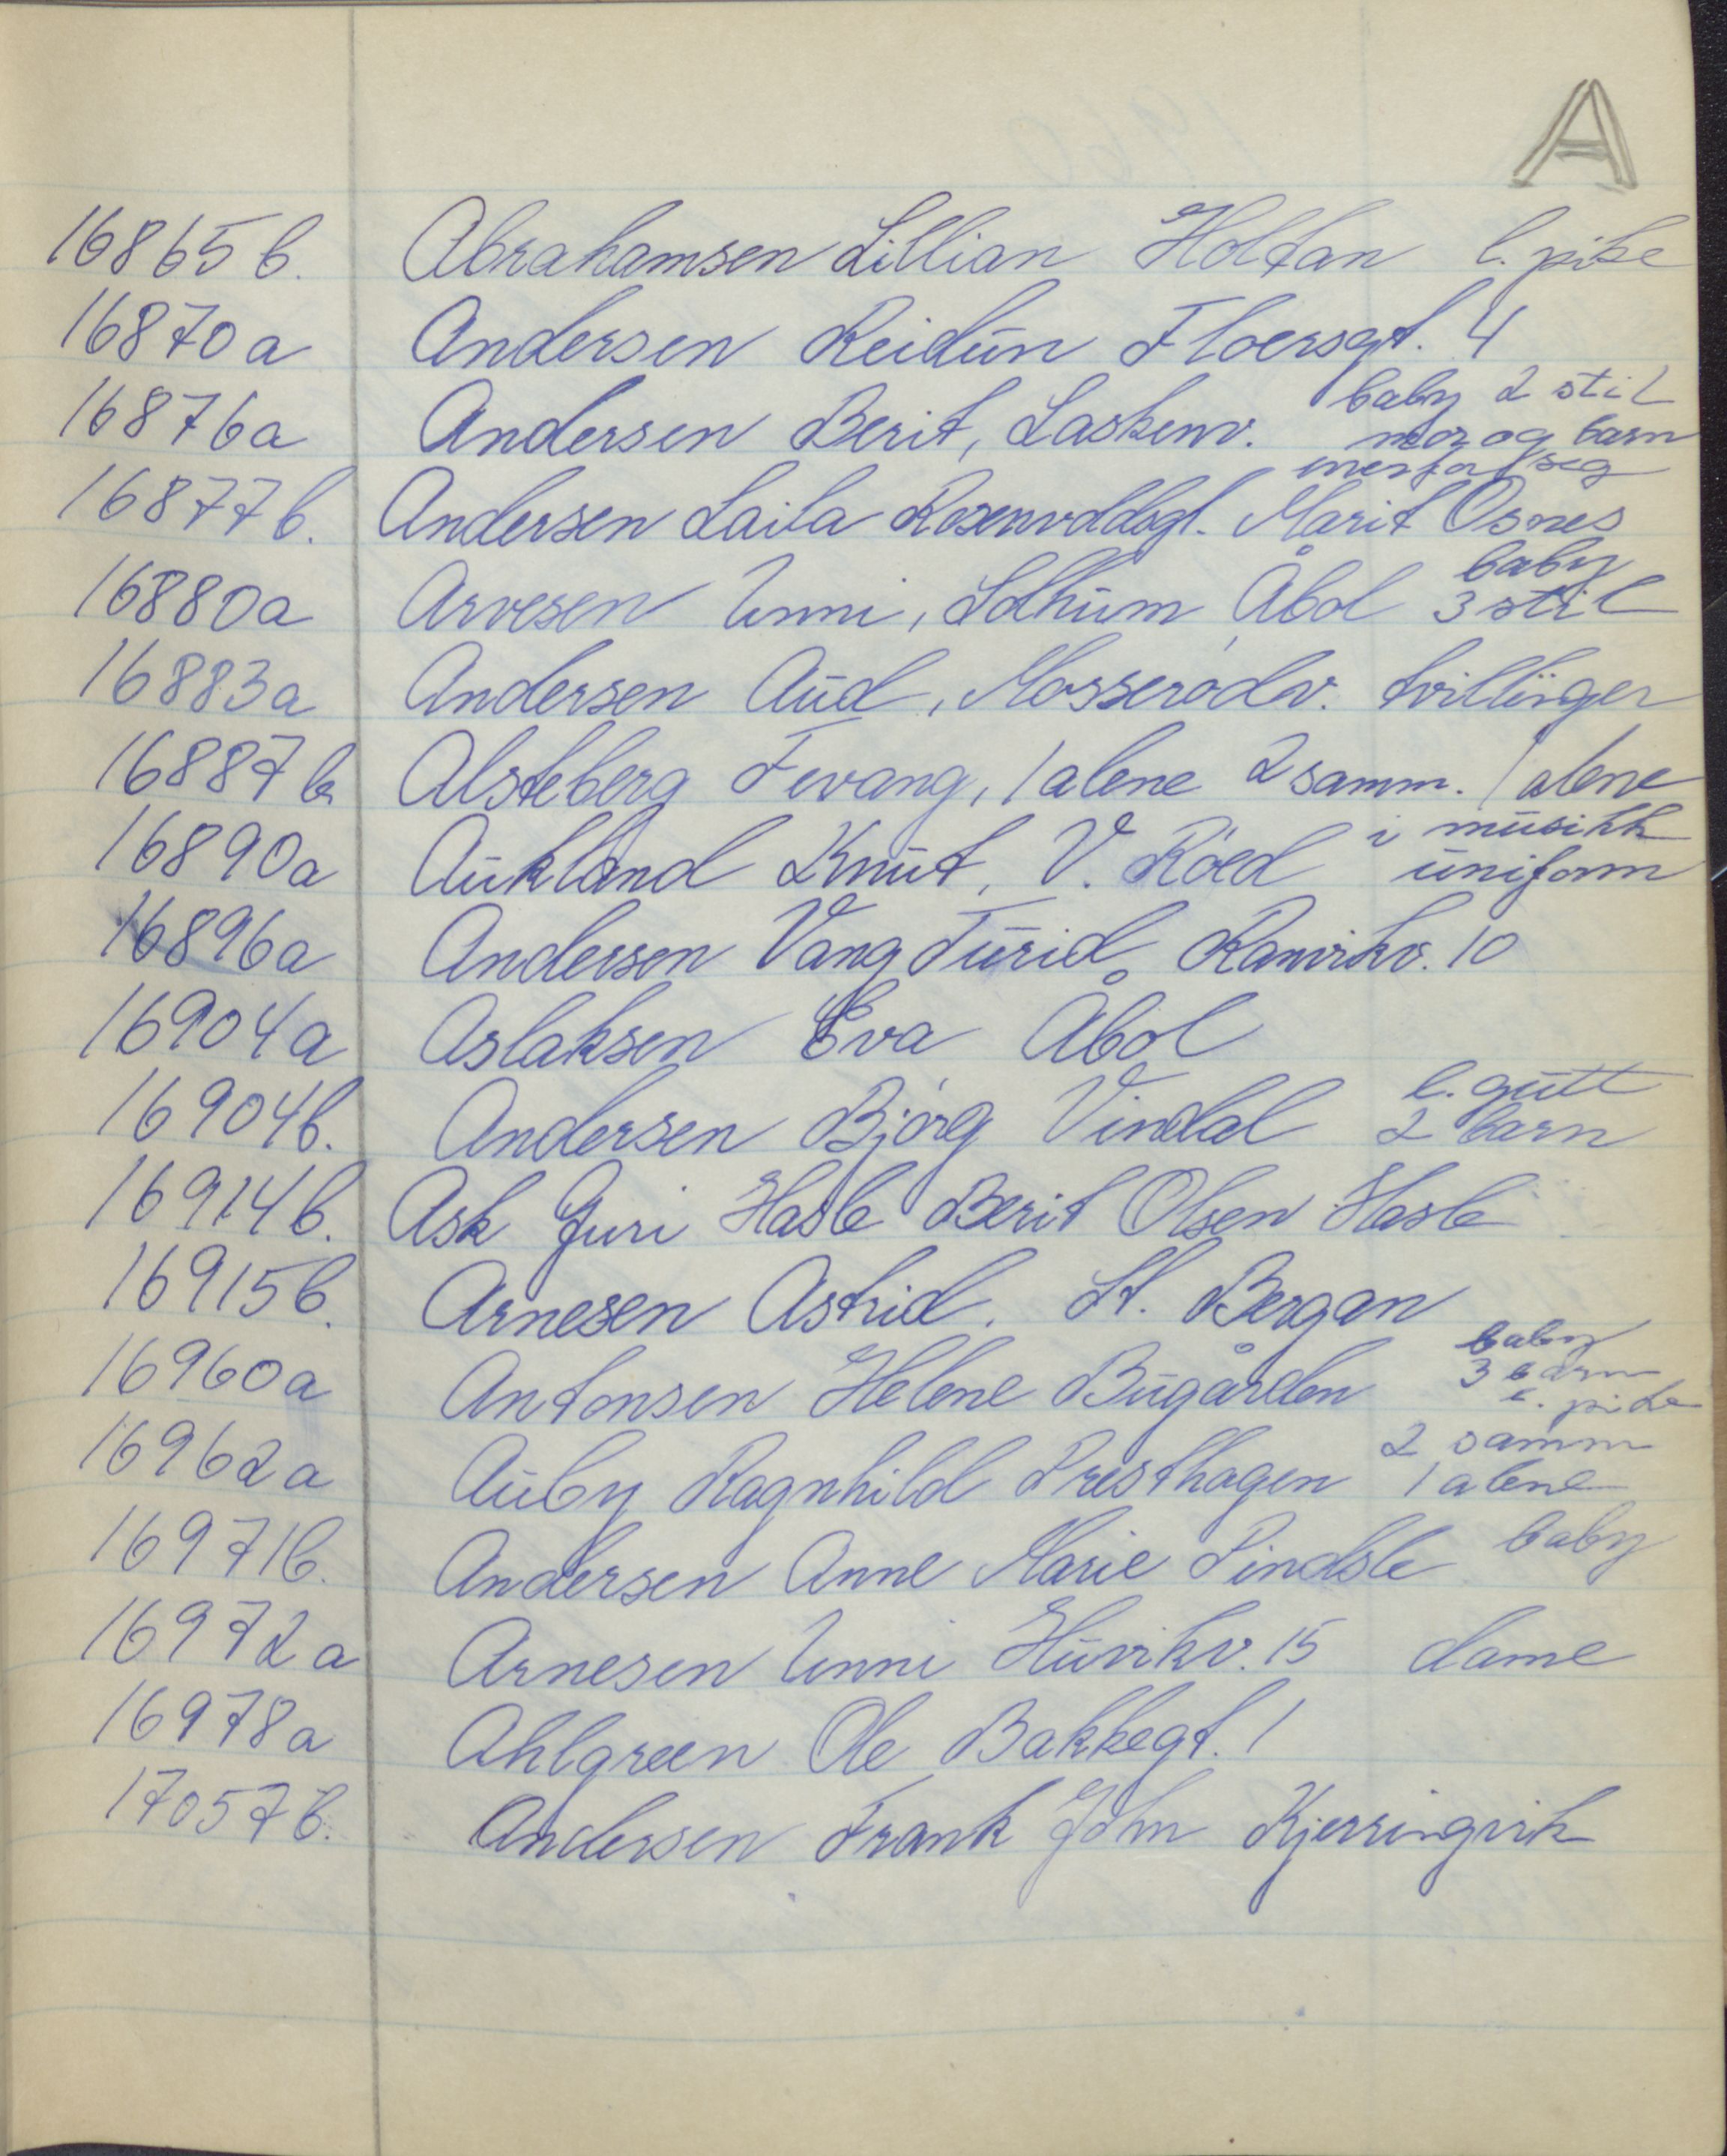 A
16865 b. Abrahamsen Lillian Holtan l. pike
16870 a Andersen Reidun Floersgt. 4
16876 a Andersen Berit, Laskenv. baby 2 stil
mor og barn
hver for seg
16877 b. Andersen Laila Rosenvoldsgt. Marit Osnes
16880 a Arvesen Unni, Solhum Åbol baby
3 stil
16883 a Andersen Aud, Mosserødv. tvillinger
16887 b Alsteberg Fevang, 1 alene 2 samm. 1 alene
16890 a Aukland Knut, V. Råed i musikk
uniform
16896 a Andersen Vang Turid Ranvikv. 10
16904 a Aslaksen Eva Åbol
16904 b. Andersen Bjørg Vindal l. gutt
2 barn
16914 b. Ask Guri Hasle Berit Olsen Hasle
16915 b. Arnesen Astrid. St. Bergan
16960 a Antonsen Helene Bugården baby
3 barn
l. pike
16962 a Auby Ragnhild Presthagen 2 samm
1 alene
16971 b. Andersen Anne Marie Pindsle baby
16972 a Arnesen Unni Huvikv. 15 dame
16978 a Ahlgreen Ole Bakkegt. 1
17057 b. Andersen Frank John Kjerringvik